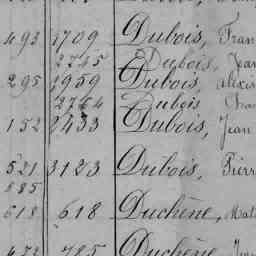 493 1709 Dubois, Fran
2745 Dubois, Jean
295 2959 Dubois, alexis
2764 Dubois
152 2433 Dubois, Jean
521 3123 Dubois, Pierr
885
618 618 Duchêne, Mat
785 Duchêne, Jean